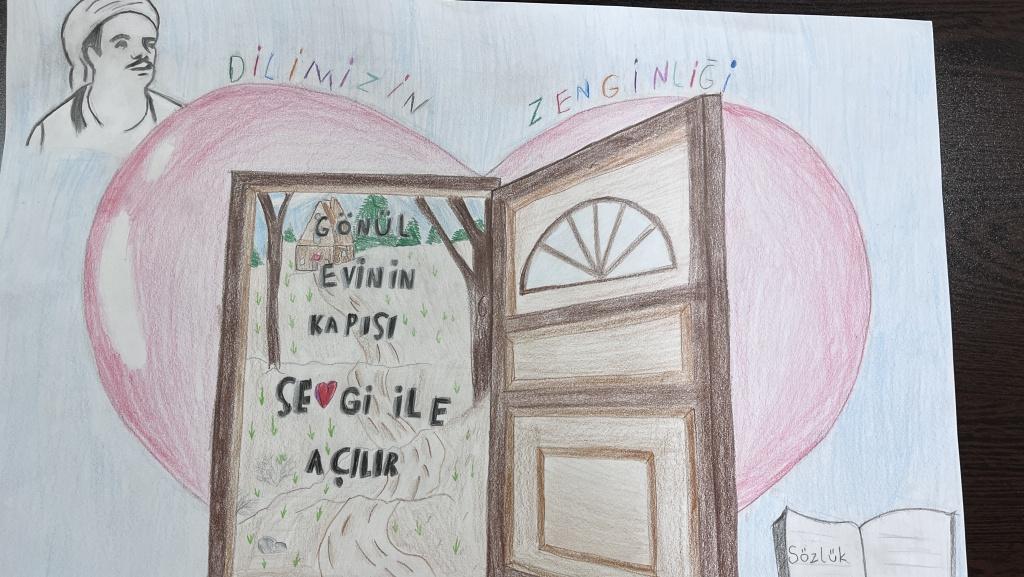 DİLİMİZİN ZENGİNLİĞİ
GÖNÜL
EVİNİN
KAPISI
SE❤Gİ İLE
AÇILIR
Sözlük